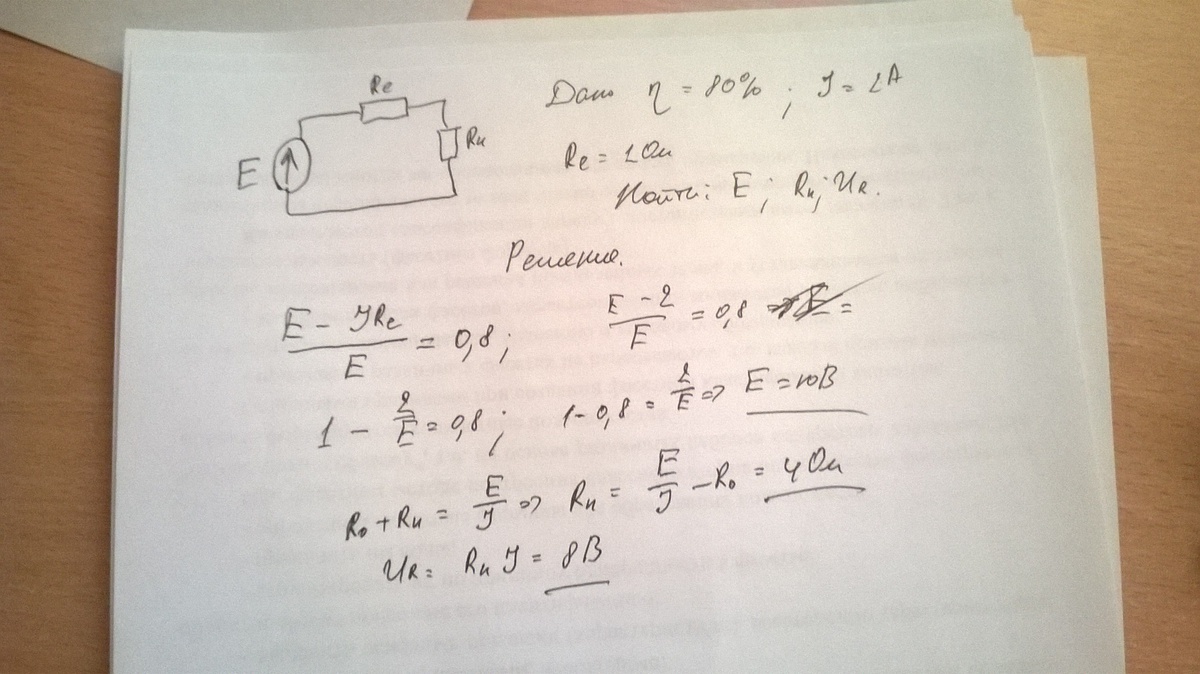 Re
Rн
E
Дано η = 80% ; J = 2A
Re = 1Ом
Найти: E ; Rн; UR.
Решение.
(E − JRe)/E = 0,8 ; (E − 2)/E = 0,8 =
1 − 2/E = 0,8 ; 1 − 0,8 = 2/E => E = 10В
R₀ + Rн = E/J => Rн = E/J − R₀ = 4Ом
UR = Rн J = 8В